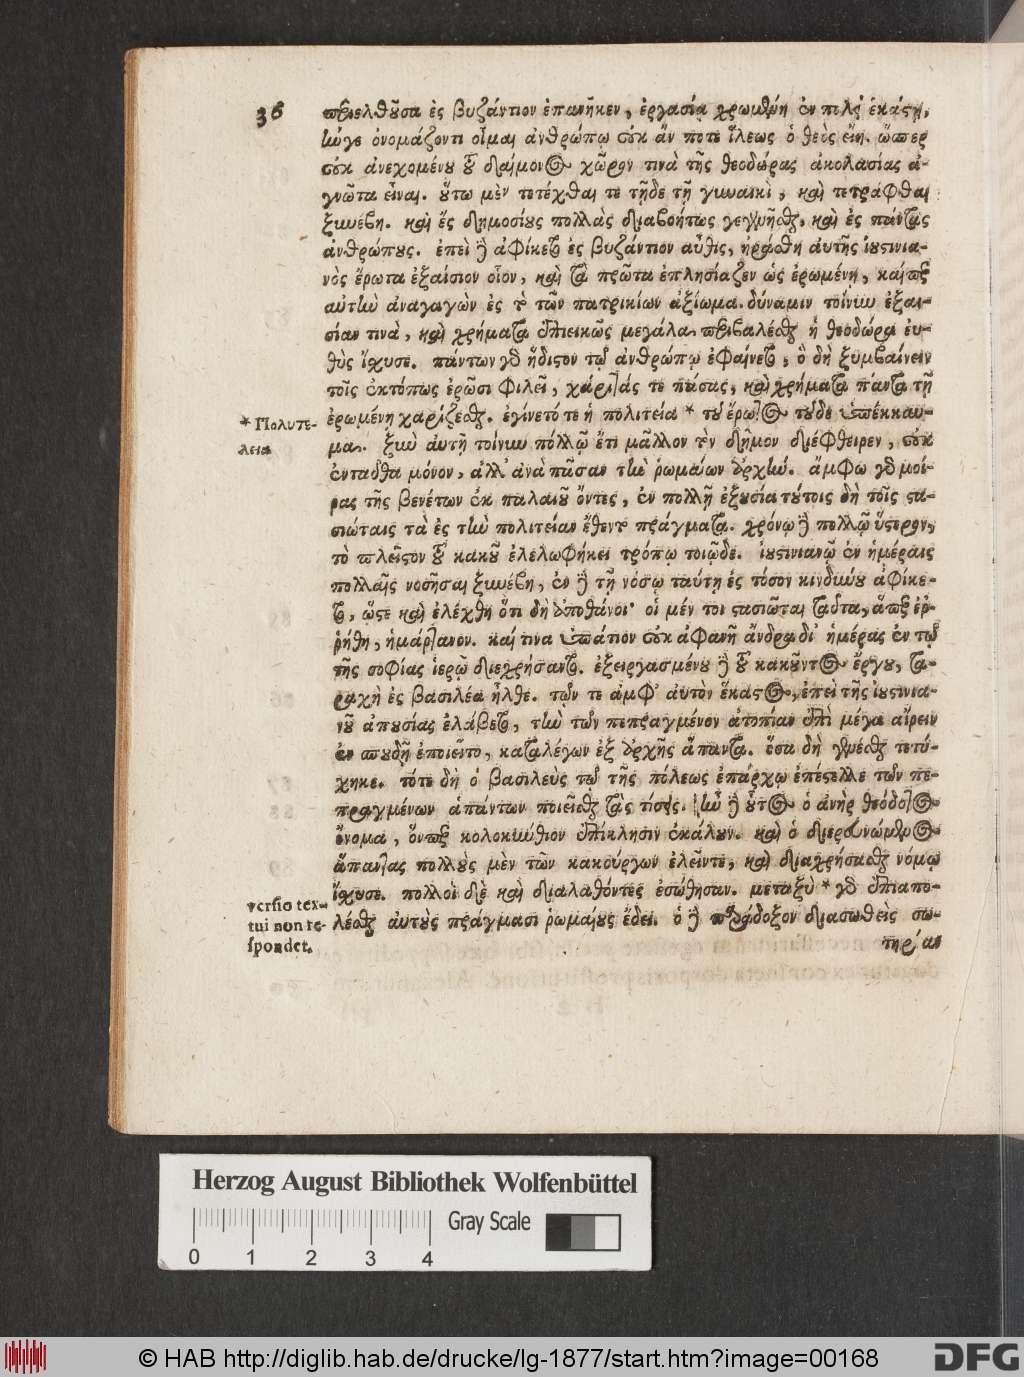 36
περιελθοῦσα ἐς βυζάντιον ἐπανῆκεν, ἐργασίᾳ χρωμένη ἐν πόλει ἑκάστῃ,
ἥνγε ὀνομάζοντι οἶμαι ἀνθρώπῳ οὐκ ἄν ποτε ἵλεως ὁ θεὸς εἴη. ὥσπερ
οὐκ ἀνεχομένου τοῦ δαίμονος χῶρόν τινα τῆς θεοδώρας ἀκολασίας ἀ-
γνῶτα εἶναι. οὕτω μὲν τετέχθαι τε τῇδε τῇ γυναικὶ, καὶ τετράφθαι
ξυνέβη. καὶ ἐς δημοσίους πολλὰς διαβοήτως γεγονῆσθαι, καὶ ἐς πάντας
ἀνθρώπους. ἐπεὶ δὲ ἀφίκετο ἐς βυζάντιον αὖθις, ἠράσθη αὐτῆς ἰουστινια-
νὸς ἔρωτα ἐξαίσιον οἷον, καὶ τὰ πρῶτα ἐπλησίαζεν ὡς ἐρωμένῃ, καίπερ
αὐτὴν ἀναγαγὼν ἐς τὸ τῶν πατρικίων ἀξίωμα. δύναμιν τοίνυν ἐξαι-
σίαν τινὰ, καὶ χρήματα ἐπιεικῶς μεγάλα περιβαλέσθαι ἡ θεοδώρα εὐ-
θὺς ἴσχυσε. πάντων γὰρ ἥδιστον τῷ ἀνθρώπῳ ἐφαίνετο, ὃ δὴ ξυμβαίνειν
τοῖς ἐκτόπως ἐρῶσι φιλεῖ, χάριτάς τε πάσας, καὶ χρήματα πάντα τῇ
ἐρωμένῃ χαρίζεσθαι. ἐγίνετό τε ἡ πολιτεία * τοῦ ἔρωτος τοῦδε ὑπέκκαυ-
* Πολυτέ-
λεια
μα. ξὺν αὐτῇ τοίνυν πολλῷ ἔτι μᾶλλον τὸν δῆμον διέφθειρεν, οὐκ
ἐνταῦθα μόνον, ἀλλ' ἀνὰ πᾶσαν τὴν ῥωμαίων ἀρχήν. ἄμφω γὰρ μοί-
ρας τῆς βενέτων ἐκ παλαιοῦ ὄντες, ἐν πολλῇ ἐξουσίᾳ τούτοις δὴ τοῖς στα-
σιώταις τὰ ἐς τὴν πολιτείαν ἔθεντο πράγματα. χρόνῳ δὲ πολλῷ ὕστερον,
τὸ πλεῖστον τοῦ κακοῦ ἐλελωφήκει τρόπῳ τοιῷδε. ἰουστινιανῷ ἐν ἡμέραις
πολλαῖς νοσῆσαι ξυνέβη, ἐν δὲ τῇ νόσῳ ταύτῃ ἐς τόσον κινδύνου ἀφίκε-
το, ὥστε καὶ ἐλέχθη ὅτι δὴ ἀποθάνοι· οἱ μέν τοι στασιῶται ταῦτα, ἅπερ ἐῤ-
ῥήθη, ἡμάρτανον. καί τινα ὑπάτιον οὐκ ἀφανῆ ἄνδρα δι' ἡμέρας ἐν τῷ
τῆς σοφίας ἱερῷ διεχρήσαντο. ἐξειργασμένου δὲ τοῦ κακοῦντος ἔργου, τα-
ραχὴ ἐς βασιλέα ἦλθε. τῶν τε ἀμφ' αὐτὸν ἕκαστος, ἐπεὶ τῆς ἰουστινια-
νοῦ ἀπουσίας ἐλάβετο, τὴν τῶν πεπραγμένον ἀτοπίαν ἐπὶ μέγα αἴρειν
ἐν σπουδῇ ἐποιεῖτο, καταλέγων ἐξ ἀρχῆς ἅπαντα. ὅσα δὴ γενέσθαι τετύ-
χηκε. τότε δὴ ὁ βασιλεὺς τῷ τῆς πόλεως ἐπάρχῳ ἐπέστελλε τῶν πε-
πραγμένων ἁπάντων ποιεῖσθαι τὰς τίσεις. ἦν δὲ οὗτος ὁ ἀνὴρ θεόδοτος
ὄνομα, ὅνπερ κολοκυνθιον ἐπίκλησιν ἐκάλουν. καὶ ὁ διερευνώμενος
ἅπαντας πολλοὺς μὲν τῶν κακούργων ἑλεῖν τε, καὶ διαχρήσασθαι νόμῳ
ἴσχυσε. πολλοὶ δὲ καὶ διαλαθόντες ἐσώθησαν. μεταξὺ * γὰρ ἐπιαπο-
versio tex-
tui non re-
spondet.
λέσθαι αὐτοὺς πράγμασι ῥωμαίους ἔδει. ὁ δὲ παράδοξον διασωθεὶς σω-
τηρίαν
Herzog August Bibliothek Wolfenbüttel
Gray Scale
0 1 2 3 4
© HAB http://diglib.hab.de/drucke/lg-1877/start.htm?image=00168
DFG